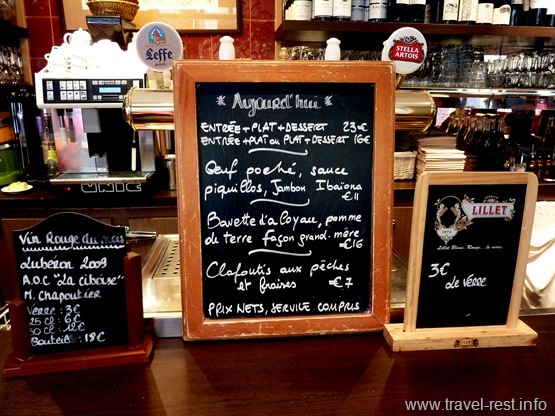 Leffe
STELLA
ARTOIS
UNIC
* Aujourd'hui *
ENTRÉE+PLAT+DESSERT 23€
ENTRÉE+PLAT ou PLAT+DESSERT 16€
Oeuf poché, sauce
piquillos, Jambon Ibaïona
€11
Bavette d'aloyau, pomme
de terre façon grand-mère
€16
Clafoutis aux pêches
et fraises €7
PRIX NETS, SERVICE COMPRIS
Vin Rouge du mois
Luberon 2009
A.O.C "La Ciboise"
M. Chapoutier
Verre : 3€
25 cl : 6€
50 cl : 12€
Bouteille : 18€
LILLET
Lillet Blanc, Rouge... le verre
3€
Le VERRE
www.travel-rest.info